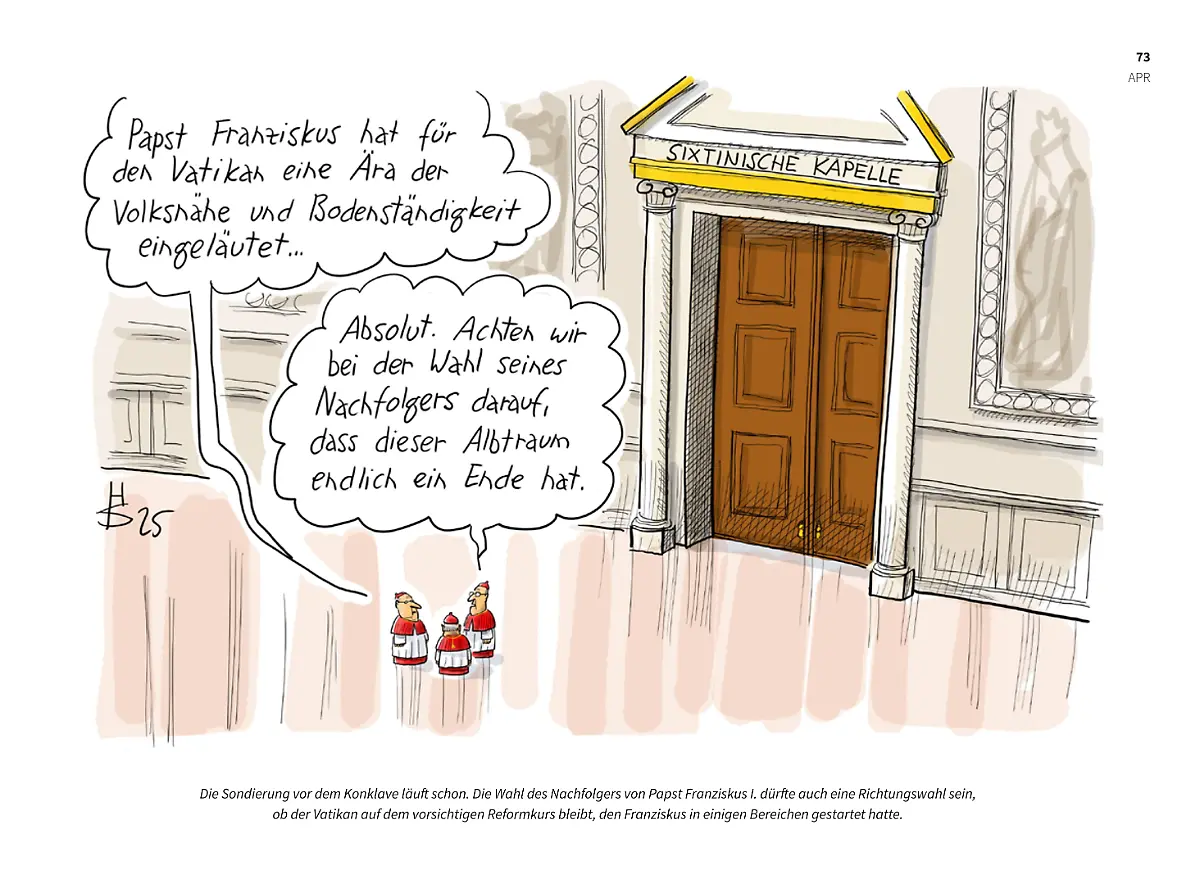 73
APR
Papst Franziskus hat für
den Vatikan eine Ära der
Volksnähe und Bodenständigkeit
eingeläutet...
SIXTINISCHE KAPELLE
Absolut. Achten wir
bei der Wahl seines
Nachfolgers darauf,
dass dieser Albtraum
endlich ein Ende hat.
HS 25
Die Sondierung vor dem Konklave läuft schon. Die Wahl des Nachfolgers von Papst Franziskus I. dürfte auch eine Richtungswahl sein,
ob der Vatikan auf dem vorsichtigen Reformkurs bleibt, den Franziskus in einigen Bereichen gestartet hatte.